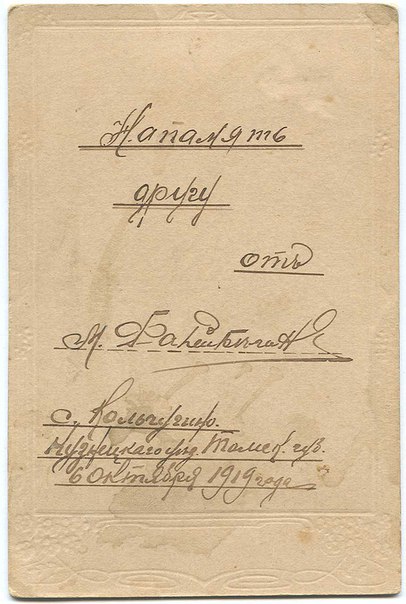 На память
другу
отъ
М.
с. Кольчугино.
Кузнецкаго уѣз. Томск. губ.
6 октября 1919 года